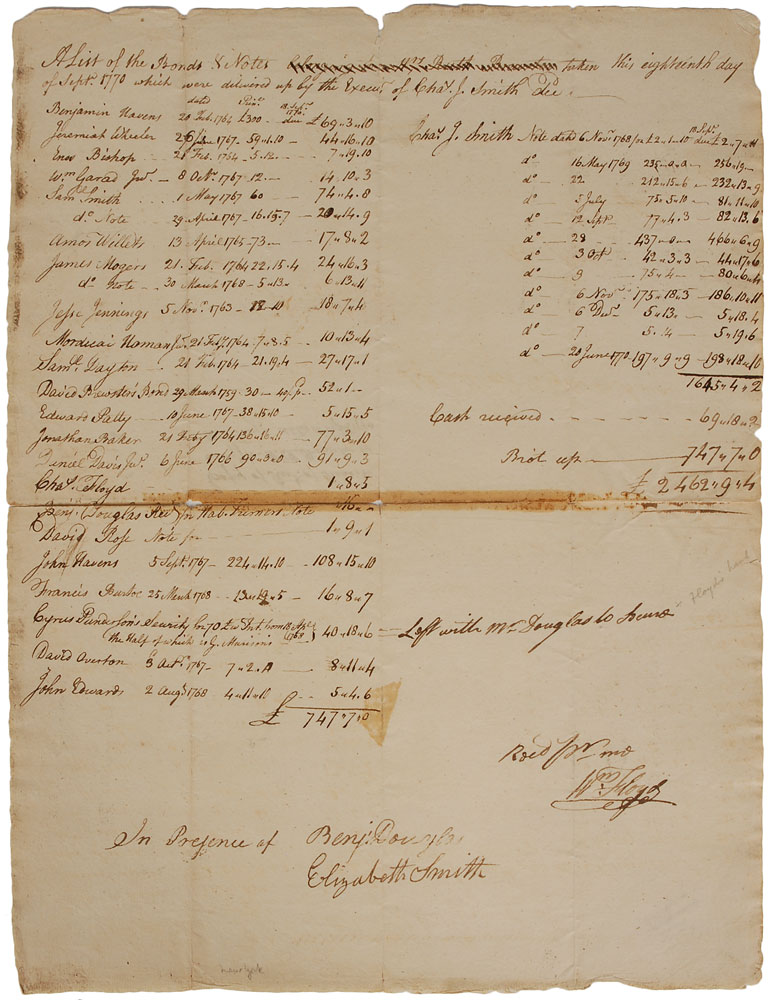 A List of the Bonds & Notes taken this eighteenth day
of Sept. 1770 which were delivered up by the Execu.r of Cha.s J. Smith Dec.
dated due
Benjamin Havens 20 Feb. 1764 £300 - £69 " 3 " 10
Jeremiah Wheeler 1767 - 59 " 1 . 10 44 " 16 " 10
Enos Bishop 21 Feb. 1764 - 5 . 12 - 7 " 19 . 10
W.m Garad Ju.r 8 Oct. 1767 - 12 . - 14 . 10 " 3
Sam.l Smith 1 May 1767 60 74 " 4 . 8
d.o Note 29 April 1767 - 16 . 15 . 7 - 20 " 14 . 9
Amos Willets 13 April 1765 - 73 . - 17 " 8 " 2
James Mogers 21 . Feb. 1764 22 . 15 . 4 24 " 16 " 3
d.o Note - 30 March 1768 - 5 " 13 - 6 . 13 " 4
Jesse Jennings 5 Nov. 1763 - 12 . 10 18 " 7 " 4
Mordicai Haman J.r 21 Feb. 1764 . 7 " 8 . 5 10 " 13 " 4
Sam.l Dayton 21 Feb. 1764 - 21 . 19 . 4 - 27 " 17 " 1
David Brewster's Bond 29 March 1759 . 30 - 52 " 1 -
Edward Patty 10 June 1767 - 38 . 15 . 10 - 5 " 15 . 5
Jonathan Baker 21 Feb.y 1764 136 " 16 " 11 - 77 " 3 " 10
Daniel Davis Ju.r 6 June 1766 90 " 3 " 0 - 91 " 9 " 3
Cha.s Floyd 1 " 8 " 5
Benj. Douglas Hab. Turners Note 16 " "
David Rose Note for 1 " 9 " 1
John Havens 5 Sept. 1767 - 224 . 14 . 10 - 108 " 15 " 10
Francis Burtoe 25 March 1768 - 13 " 19 " 5 - 16 " 8 " 7
Cyrus Punderson's Security for 70 . Int. from 18 1768 40 " 18 " 6 = Left with Mr Douglas to
the Half of which is G. Muirson's
David Overton 3 Oct. 1767 - 7 " 2 . 8 " 11 " 4
John Edwards 2 Aug. 1768 4 " 11 " 11 - - 5 " 4 . 6
£ 747 " 7 " 0
Cha.s J. Smith Note dated 6 Nov. 1768 for £2 " 1 " 10 due £2 " 7 " 11
d.o 16 May 1769 235 " 0 " 0 - 256 " 19 -
d.o 22 . 212 " 15 " 6 - 232 " 13 " 9
d.o 5 July 75 " 5 " 10 - 81 " 11 " 10
d.o 12 Sept. 77 " 4 . 3 - 82 " 13 . 6
d.o 28 437 " 0 " - 466 " 6 " 9
d.o 3 Oct. 42 " 3 . 3 - 44 " 17 " 6
d.o 9 75 " 4 - 80 " 6 " 4
d.o 6 Nov. 175 " 18 " 5 - 186 " 10 " 11
d.o 6 Dec. 5 " 13 " - 5 " 18 . 4
d.o 7 5 . 14 - 5 " 19 . 6
d.o 20 June 1770 197 " 9 " 9 - 198 " 18 " 10
1645 " 4 " 2
Cash received 69 " 18 " 2
Brot up 747 " 7 " 0
£ 2462 " 9 " 4
Floyd's hand
Recd pr me
Wm Floyd
In Presence of Benj. Douglas
Elizabeth Smith
new york